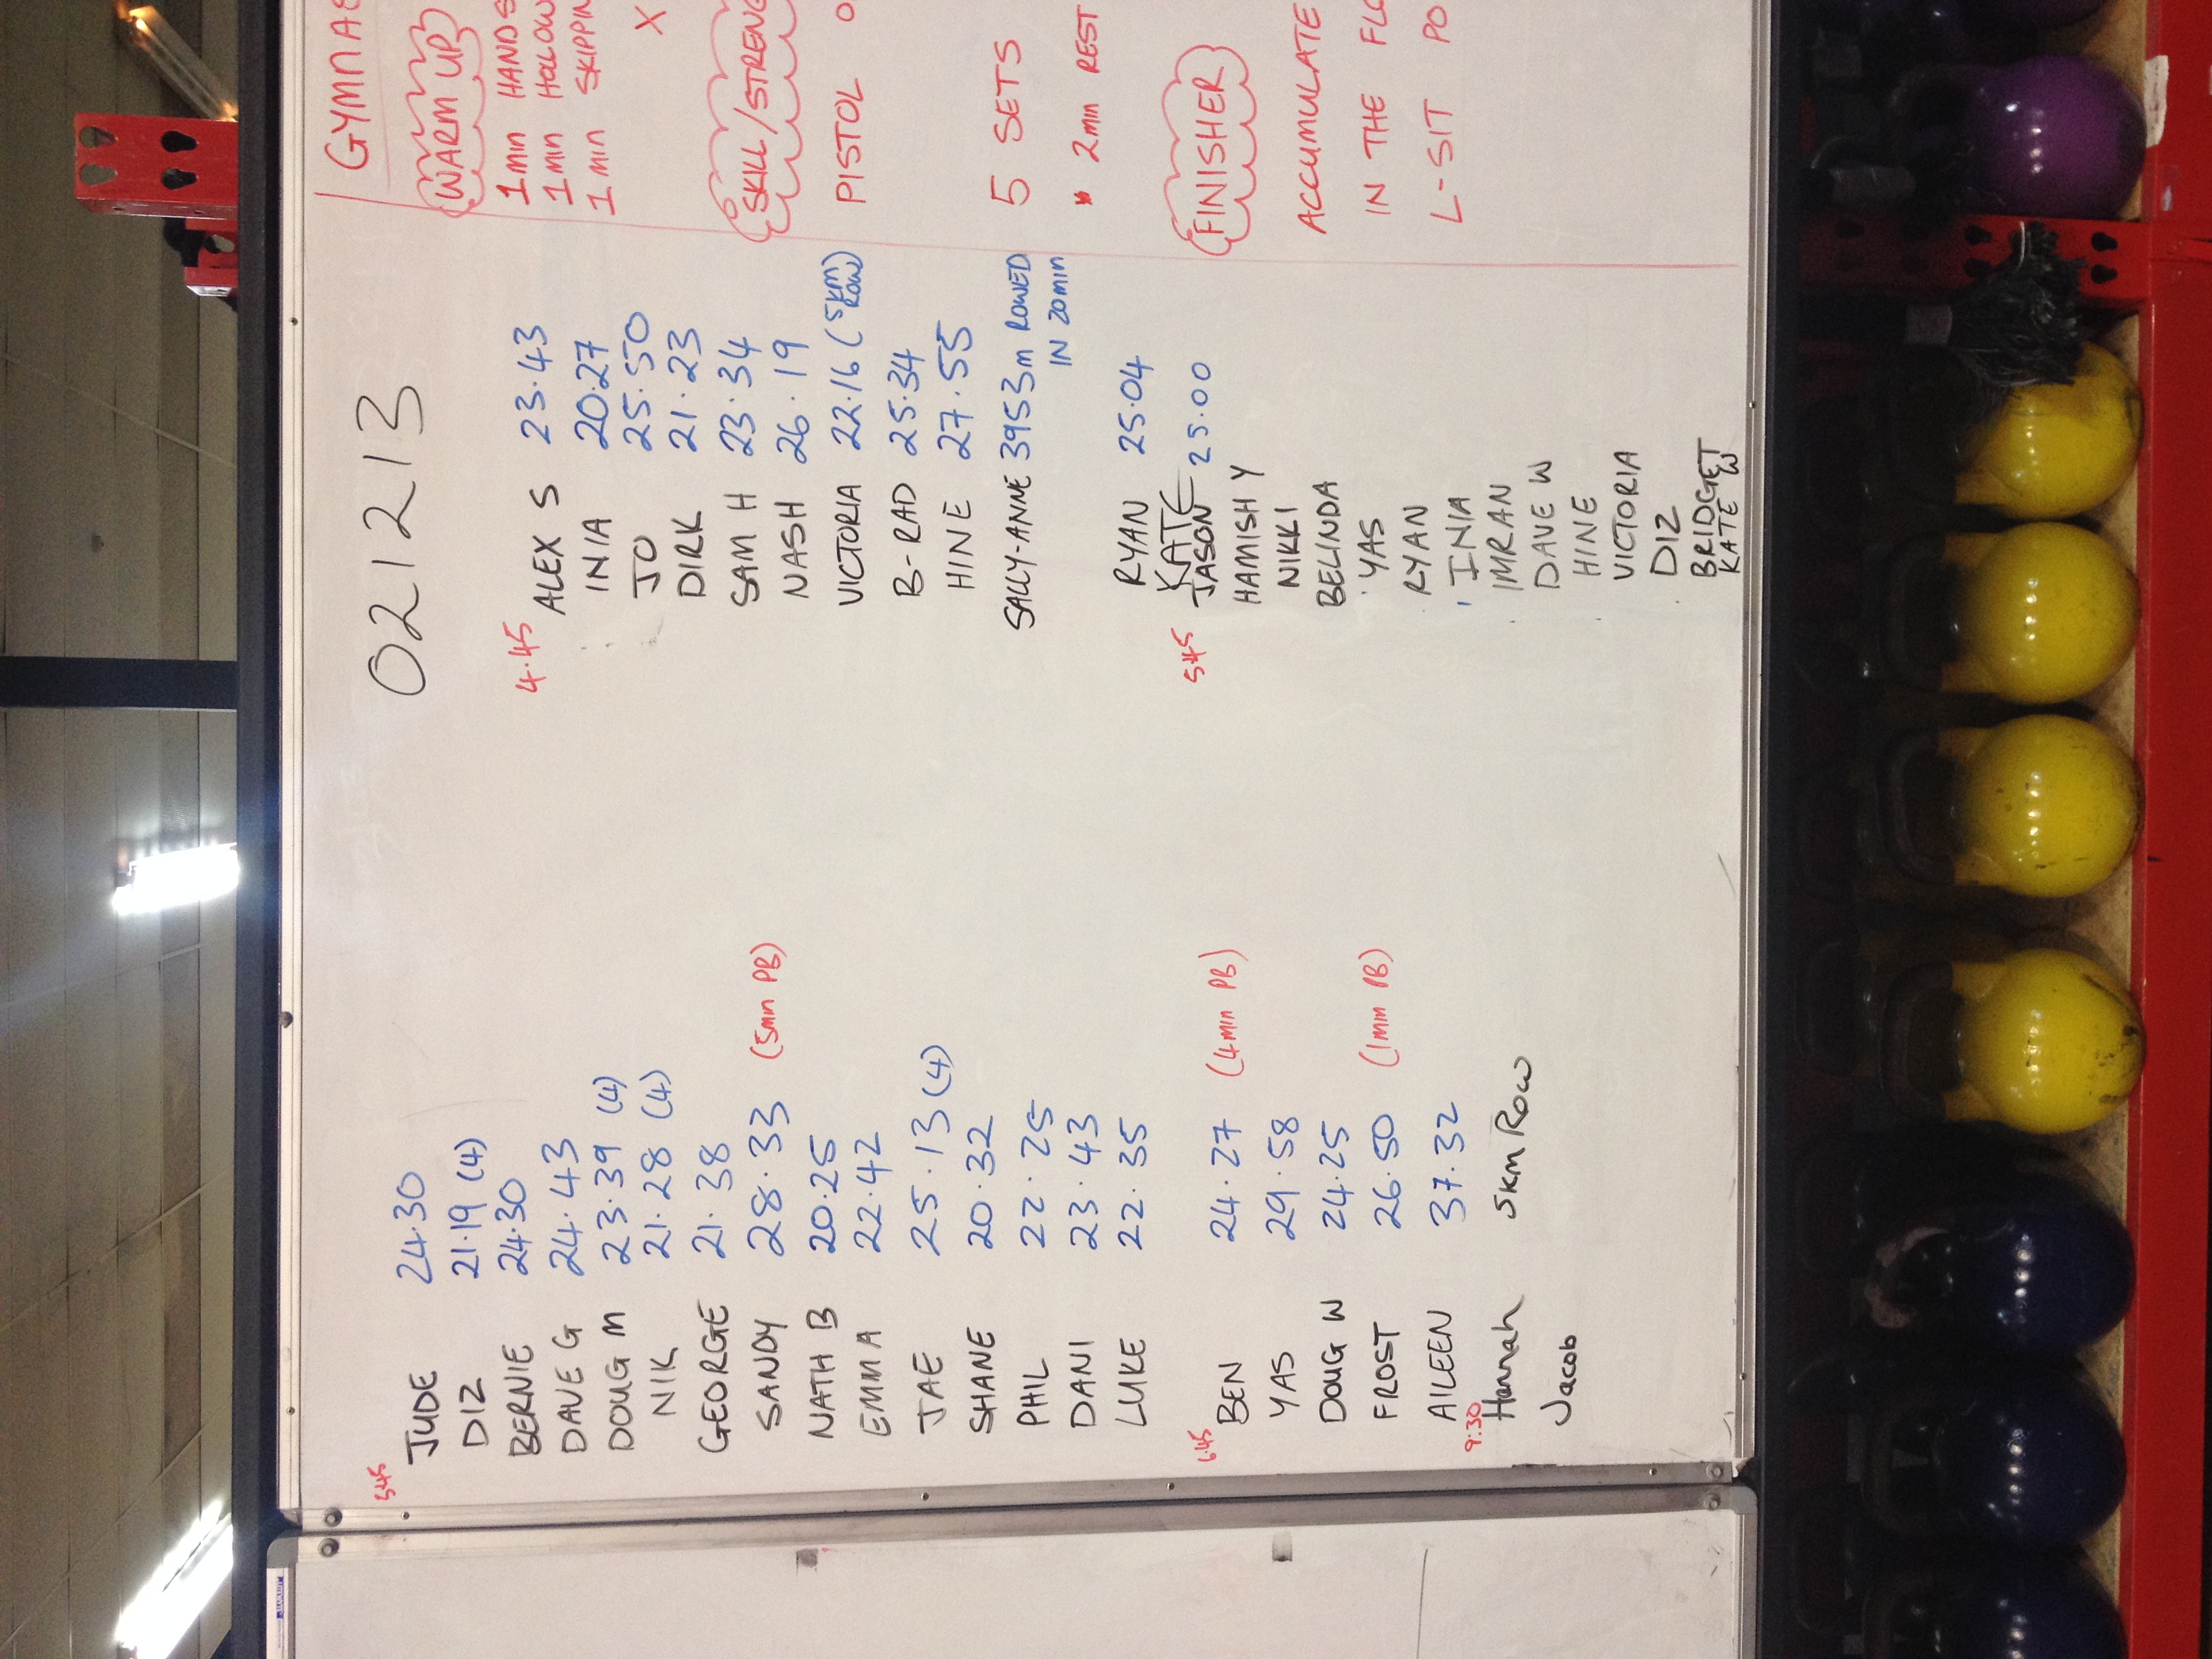 021213
5.45
JUDE 24.30
DIZ 21.19 (4)
BERNIE 24.30
DAVE G 24.43
DOUG M 23.39 (4)
NIK 21.28 (4)
GEORGE 21.38
SANDY 28.33 (5min PB)
NATH B 20.25
EMMA 22.42
JAE 25.13 (4)
SHANE 20.32
PHIL 22.25
DANI 23.43
LUKE 22.35
6.45
BEN 24.27 (4min PB)
YAS 29.58
DOUG W 24.25
FROST 26.50 (1min PB)
AILEEN 37.32
9:30
Hannah 5km Row
Jacob
4.45
ALEX S 23.43
INIA 20.27
JO 25.50
DIRK 21.23
SAM H 23.34
NASH 26.19
VICTORIA 22.16 (5km ROW)
B-RAD 25.34
HINE 27.55
SALLY-ANNE 3953m ROWED
IN 20min
RYAN 25.04
KATE
5.45
JASON 25.00
HAMISH Y
NIKKI
BELINDA
YAS
RYAN
INIA
IMRAN
DAVE W
HINE
VICTORIA
DIZ
BRIDGET
KATE W
GYMNAS
WARM UP
1 min HANDS
1 min HOLLOW
1 min SKIPPIN
X
SKILL/STRENG
PISTOL O
5 SETS
* 2min REST
FINISHER
ACCUMULATE
IN THE FLO
L-SIT PO